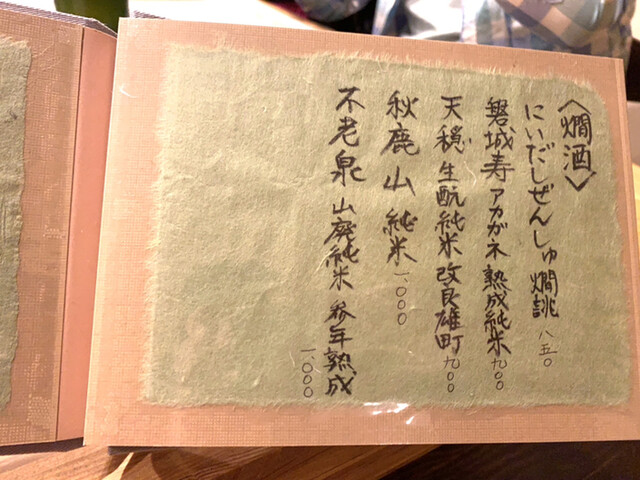 〈燗酒〉
にいだしぜんしゅ 燗誂 八五〇
磐城寿 アカガネ 熟成純米 九〇〇
天穏 生酛純米 改良雄町 九〇〇
秋鹿 山 純米 一、〇〇〇
不老泉 山廃純米 参年熟成 一、〇〇〇